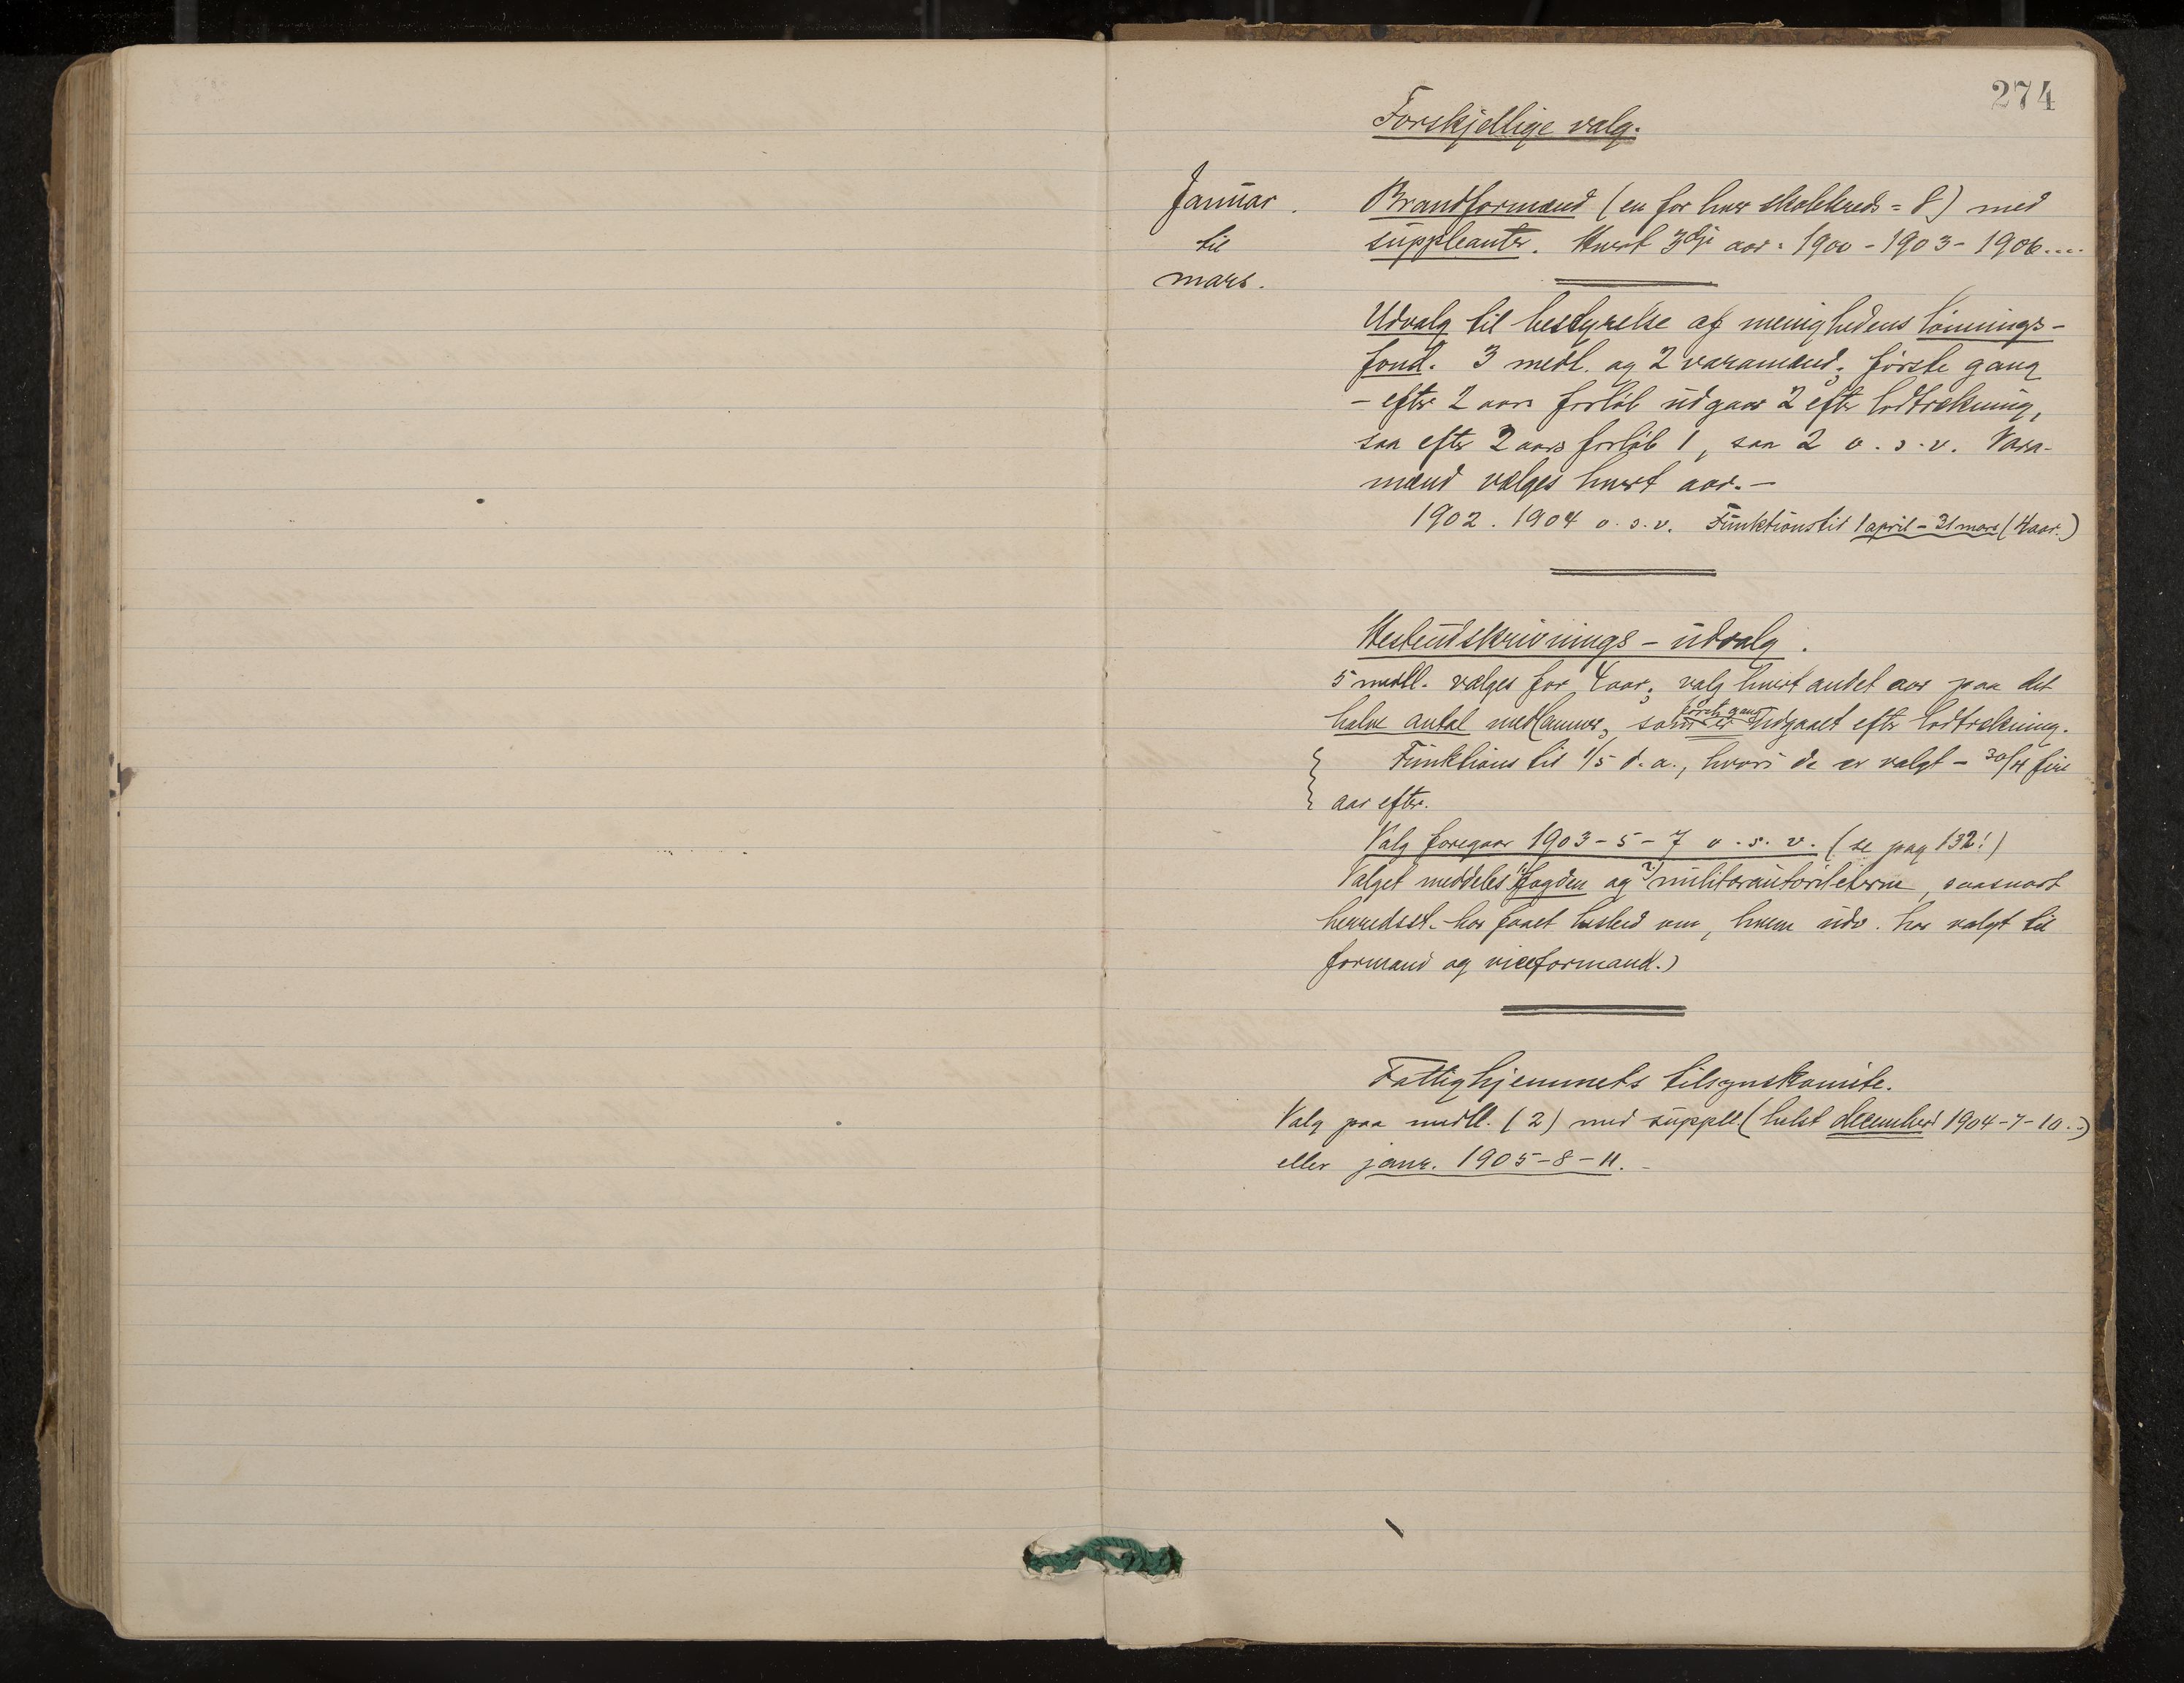 274
Forskjellige valg.
Januar. Brandformænd (en for hver skolekreds = 8) med
til suppleanter. Hvert 3dje aar: 1900 - 1903 - 1906....
mars.
Udvalg til bestyrelse af menighedens lønnings-
fond. 3 medl. og 2 varamænd; første gang
- efter 2 aars forløb udgaar 2 efter lodtrækning,
saa efter 2 aars forløb 1, saa 2 o. s. v. Vara-
mænd vælges hvert aar. -
1902. 1904 o. s. v. Funktionstid 1 april - 31 mars (4 aar.)
Hesteudskrivnings - udvalg.
5 medll. vælges for 4 aar; valg hvert andet aar paa det
halve antal medlemmer, som er første gang udgaaet efter lodtrækning.
Funktionstid 1/5 d. a., hvori de er valgt - 30/4 fire
aar efter.
Valg foregaar 1903 - 5 - 7 o. s. v. (se pag 132!)
Valget meddeles 1) fogden og 2) militærautoriteterne, saasnart
herredsst. har faaet besked om, hvem udv. har valgt til
formand og viceformand.)
Fattighjemmets tilsynskomite.
Valg paa medll. (2) med suppll. (helst december 1904-7-10..)
eller janr. 1905-8-11. -